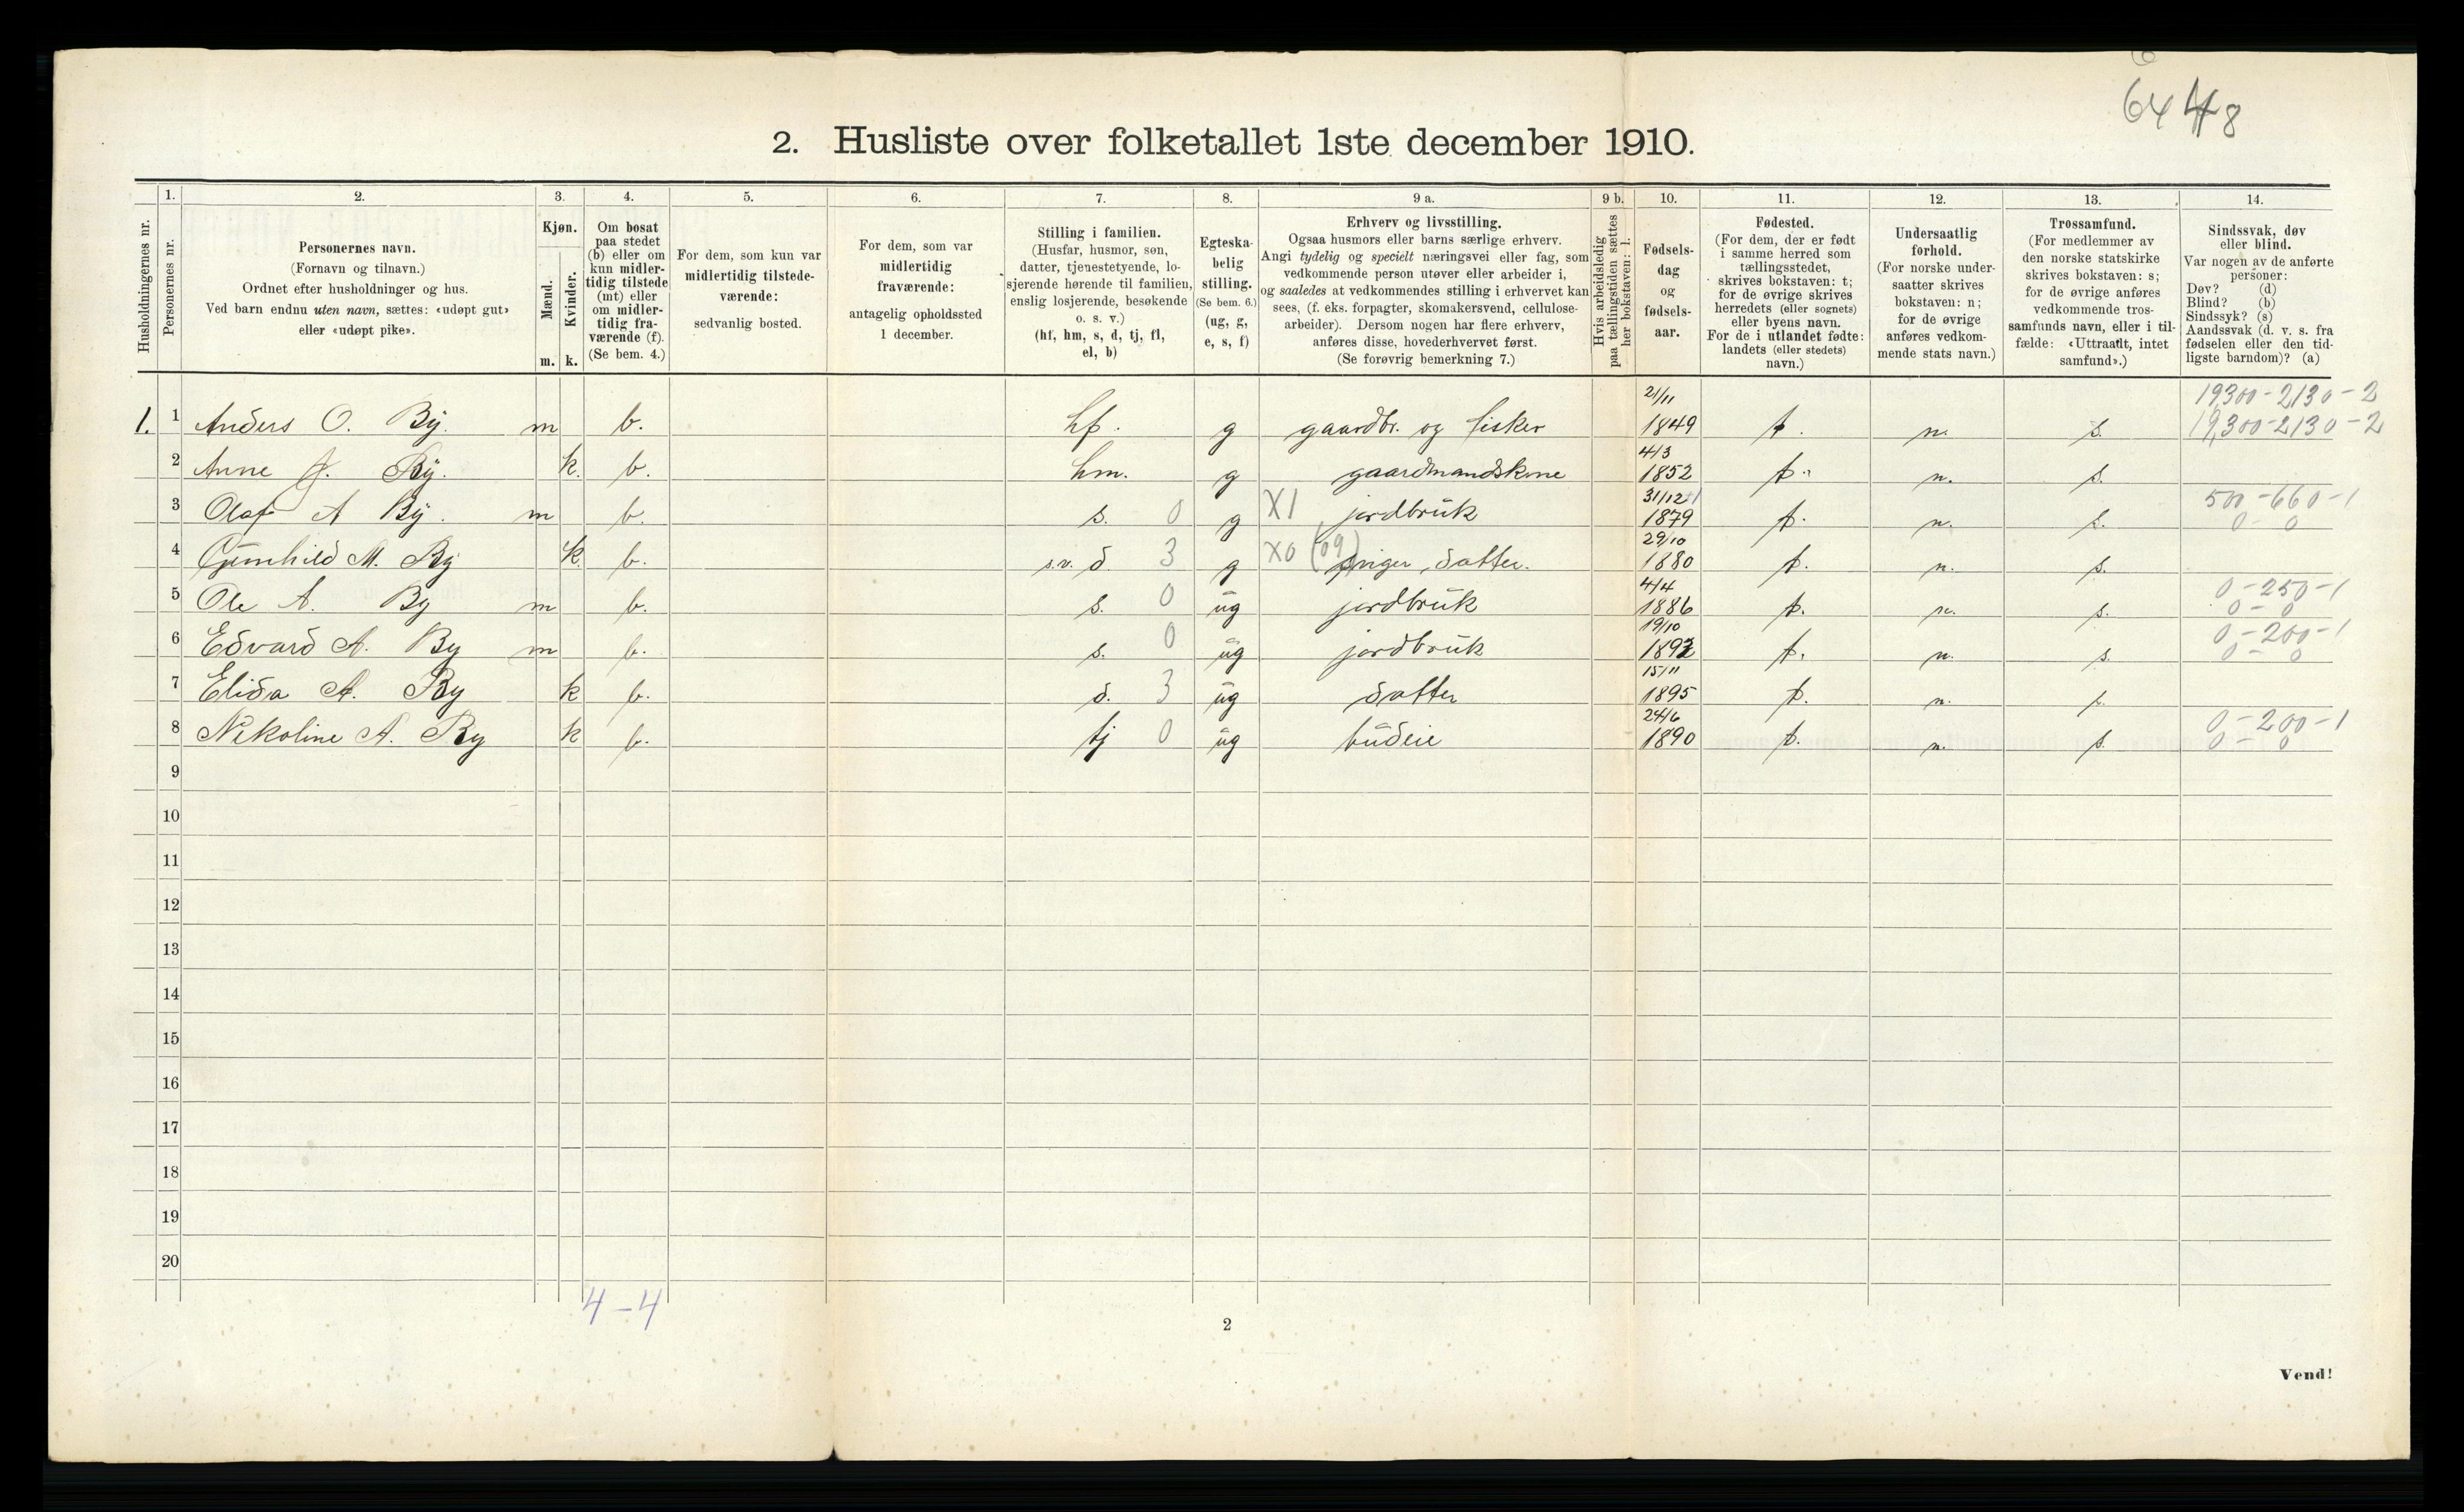 6448
2. Husliste over folketallet 1ste december 1910.
Husholdningernes nr.
1.
Personernes nr.
2.
Personernes navn.
(Fornavn og tilnavn.)
Ordnet efter husholdninger og hus.
Ved barn endnu uten navn, sættes: «udøpt gut»
eller «udøpt pike».
3.
Kjøn.
Mænd.
Kvinder.
m. k.
4.
Om bosat
paa stedet
(b) eller om
kun midler-
tidig tilstede
(mt) eller
om midler-
tidig fra-
værende (f).
(Se bem. 4.)
5.
For dem, som kun var
midlertidig tilstede-
værende:
sedvanlig bosted.
6.
For dem, som var
midlertidig
fraværende:
antagelig opholdssted
1 december.
7.
Stilling i familien.
(Husfar, husmor, søn,
datter, tjenestetyende, lo-
sjerende hørende til familien,
enslig losjerende, besøkende
o. s. v.)
(hf, hm, s, d, tj, fl,
el, b)
8.
Egteska-
belig
stilling.
(Se bem. 6.)
(ug, g,
e, s, f)
9 a.
Erhverv og livsstilling.
Ogsaa husmors eller barns særlige erhverv.
Angi tydelig og specielt næringsvei eller fag, som
vedkommende person utøver eller arbeider i,
og saaledes at vedkommendes stilling i erhvervet kan
sees, (f. eks. forpagter, skomakersvend, cellulose-
arbeider). Dersom nogen har flere erhverv,
anføres disse, hovederhvervet først.
(Se forøvrig bemerkning 7.)
9 b.
Hvis arbeidsledig
paa tællingstiden sættes
her bokstaven: l.
10.
Fødsels-
dag
og
fødsels-
aar.
11.
Fødested.
(For dem, der er født
i samme herred som
tællingsstedet,
skrives bokstaven: t;
for de øvrige skrives
herredets (eller sognets)
eller byens navn.
For de i utlandet fødte:
landets (eller stedets)
navn.)
12.
Undersaatlig
forhold.
(For norske under-
saatter skrives
bokstaven: n;
for de øvrige
anføres vedkom-
mende stats navn.)
13.
Trossamfund.
(For medlemmer av
den norske statskirke
skrives bokstaven: s;
for de øvrige anføres
vedkommende tros-
samfunds navn, eller i til-
fælde: «Uttraadt, intet
samfund».)
14.
Sindssvak, døv
eller blind.
Var nogen av de anførte
personer:
Døv? (d)
Blind? (b)
Sindssyk? (s)
Aandssvak (d. v. s. fra
fødselen eller den tid-
ligste barndom)? (a)
19,300-2130-2
1. 1 Anders O. By. m b. hf. g gaardbr. og fisker 21/11 1849 t. n. s. 19,300-2130-2
2 Anne J. By. k. b. hm. g gaardmandskone 4/3 1852 t. n. s.
3 Olaf A By. m b. s. 0 g X1 jordbruk 31/12 1879 t. n. s. 500-660-1 0-0
4 Gunhild M. By k b. s.v. d. 3 g X0 (09) datter. 29/10 1880 t. n. s.
5 Ole A. By m b. s. 0 ug jordbruk 4/4 1886 t. n. s. 0-250-1 0-0
6 Edvard A. By m b. s. 0 ug jordbruk 19/10 1892 t. n. s. 0-200-1 0-0
7 Elida A. By k b. d. 3 ug datter 15/11 1895 t. n. s.
8 Nikoline A. By k b. tj 0 ug budeie 24/6 1890 t. n. s. 0-200-1 0-0
9
10
11
12
13
14
15
16
17
18
19
20
4-4
2
Vend!